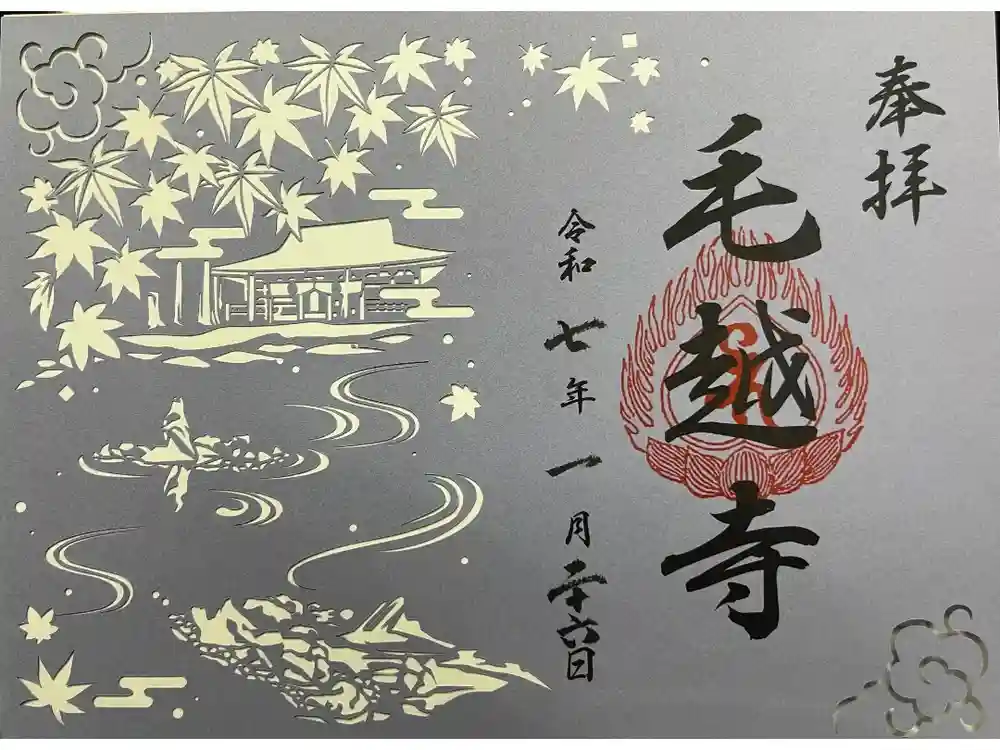 奉拝
毛越寺
令和七年一月二十六日